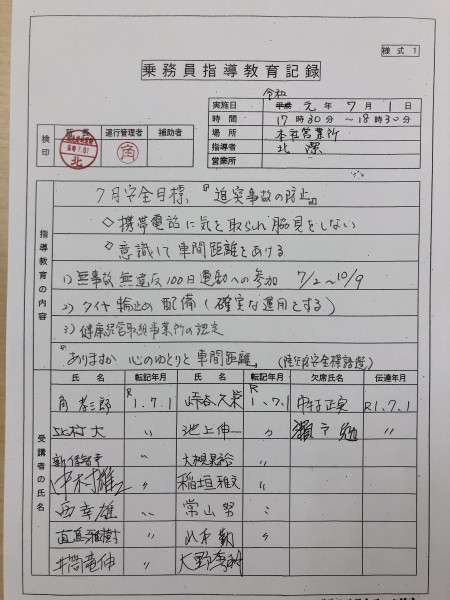 様式1
乗務員指導教育記録
令和
実施日 平成 元年 7月 1日
時間 17時30分 ～18時30分
場所 本社営業所
指導者 北 潔
営業所
検印 所長 運行管理者 補助者
北 角
指導教育の内容
7月安全目標、『追突事故の防止』
◇携帯電話に気を取られ脇見をしない
◇意識して車間距離をあける
1) 無事故無違反100日運動への参加 7/2～10/9
2) タイヤ輪止め配備(確実な運用とする)
3) 健康経営取組事業所の認定
『ありますか 心のゆとりと 車間距離』
受講者の氏名
氏名 転記年月 氏名 転記年月 欠席氏名 伝達年月
角 孝三郎 R1.7.1 R1.7.1 正実 R1.7.1
北村 大 〃 池上伸一 〃 瀬戸 勉 〃
〃 〃
中村雄 〃 稲垣雅文 〃
西 幸雄 〃 常山 努 〃
直島雅樹 〃 山本 勤 〃
井筒竜伸 〃 大野 〃